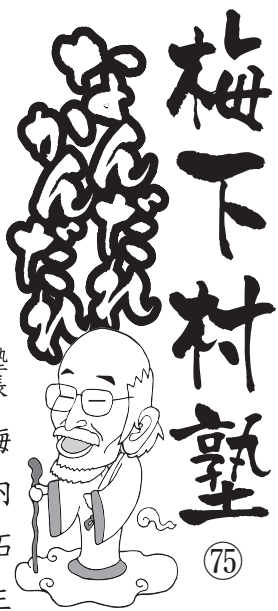 梅下村塾
㊄
なんだれ
かんだれ
塾長　梅内拓生